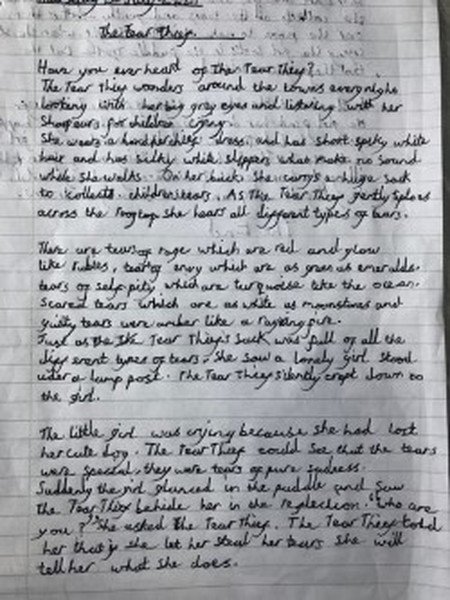 The Tear Thief
Have you ever heard of the Tear Thief?
The Tear Thief wonders around the towns every night
looking with her big grey eyes and listening with her
sharp ears for children crying.
She wears a handkerchief dress, and has short spiky white
hair and has silky white slippers what make no sound
while she walks. On her back she carrys a huge sack
to collect childrens tears. As the Tear Thief gently
across the rooftop she hears all different types of tears.
There are tears of rage which are red and glow
like rubies, tears of envy which are as green as emeralds.
tears of self pity which are turquoise like the ocean.
scared tears which are as white as moonstones and
guilty tears were amber like a raging fire.
Just as the Tear Thief's sack was full of all the
different types of tears, She saw a lonely girl stood
under a lamp post. The Tear Thief silently crept down to
the girl.
The little girl was crying because she had lost
her cute dog. The Tear Thief could see that the tears
were special, they were tears of pure sadness.
Suddenly the girl glanced in the puddle and saw
the Tear Thief behide her in the reflection. "Who are
you?" She asked the Tear Thief. The Tear Thief told
her that if she let her steal her tears she will
tell her what she does.